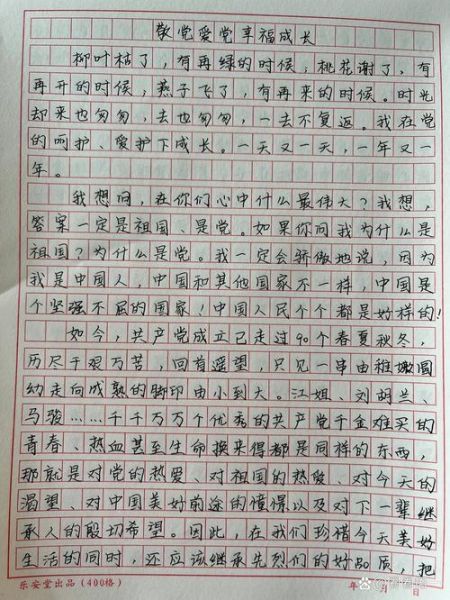 敬党爱党享福成长
柳叶枯了，有再绿的时候；桃花谢了，有
再开的时候；燕子飞了，有再来的时候。时光
却来也匆匆，去也匆匆，一去不复返。我在党
的呵护、爱护下成长。一天又一天，一年又一
年。
我想问，在你们心中什么最伟大？我想，
答案一定是祖国、是党。如果你问我为什么是
祖国？为什么是党。我一定会骄傲地说，因为
我是中国人，中国和其他国家不一样，中国是
个坚强不屈的国家！中国人民个个都是好样的！
如今，共产党成立已走过90个春夏秋冬，
历尽千艰万苦，回首遥望，只见一串由稚嫩圆
幼走向成熟的脚印由小到大。江姐、刘胡兰、
马骏……千千万万个优秀的共产党千金难买的
青春、热血甚至生命换来得都是同样的东西，
那就是对党的热爱、对祖国的热爱、对今天的
渴望、对中国美好前途的憧憬以及对下一辈继
承人的殷切希望。因此，在我们珍惜今天美好
生活的同时，还应该继承先烈们的好品质，把
乐安堂出品（400格） 年 月 日